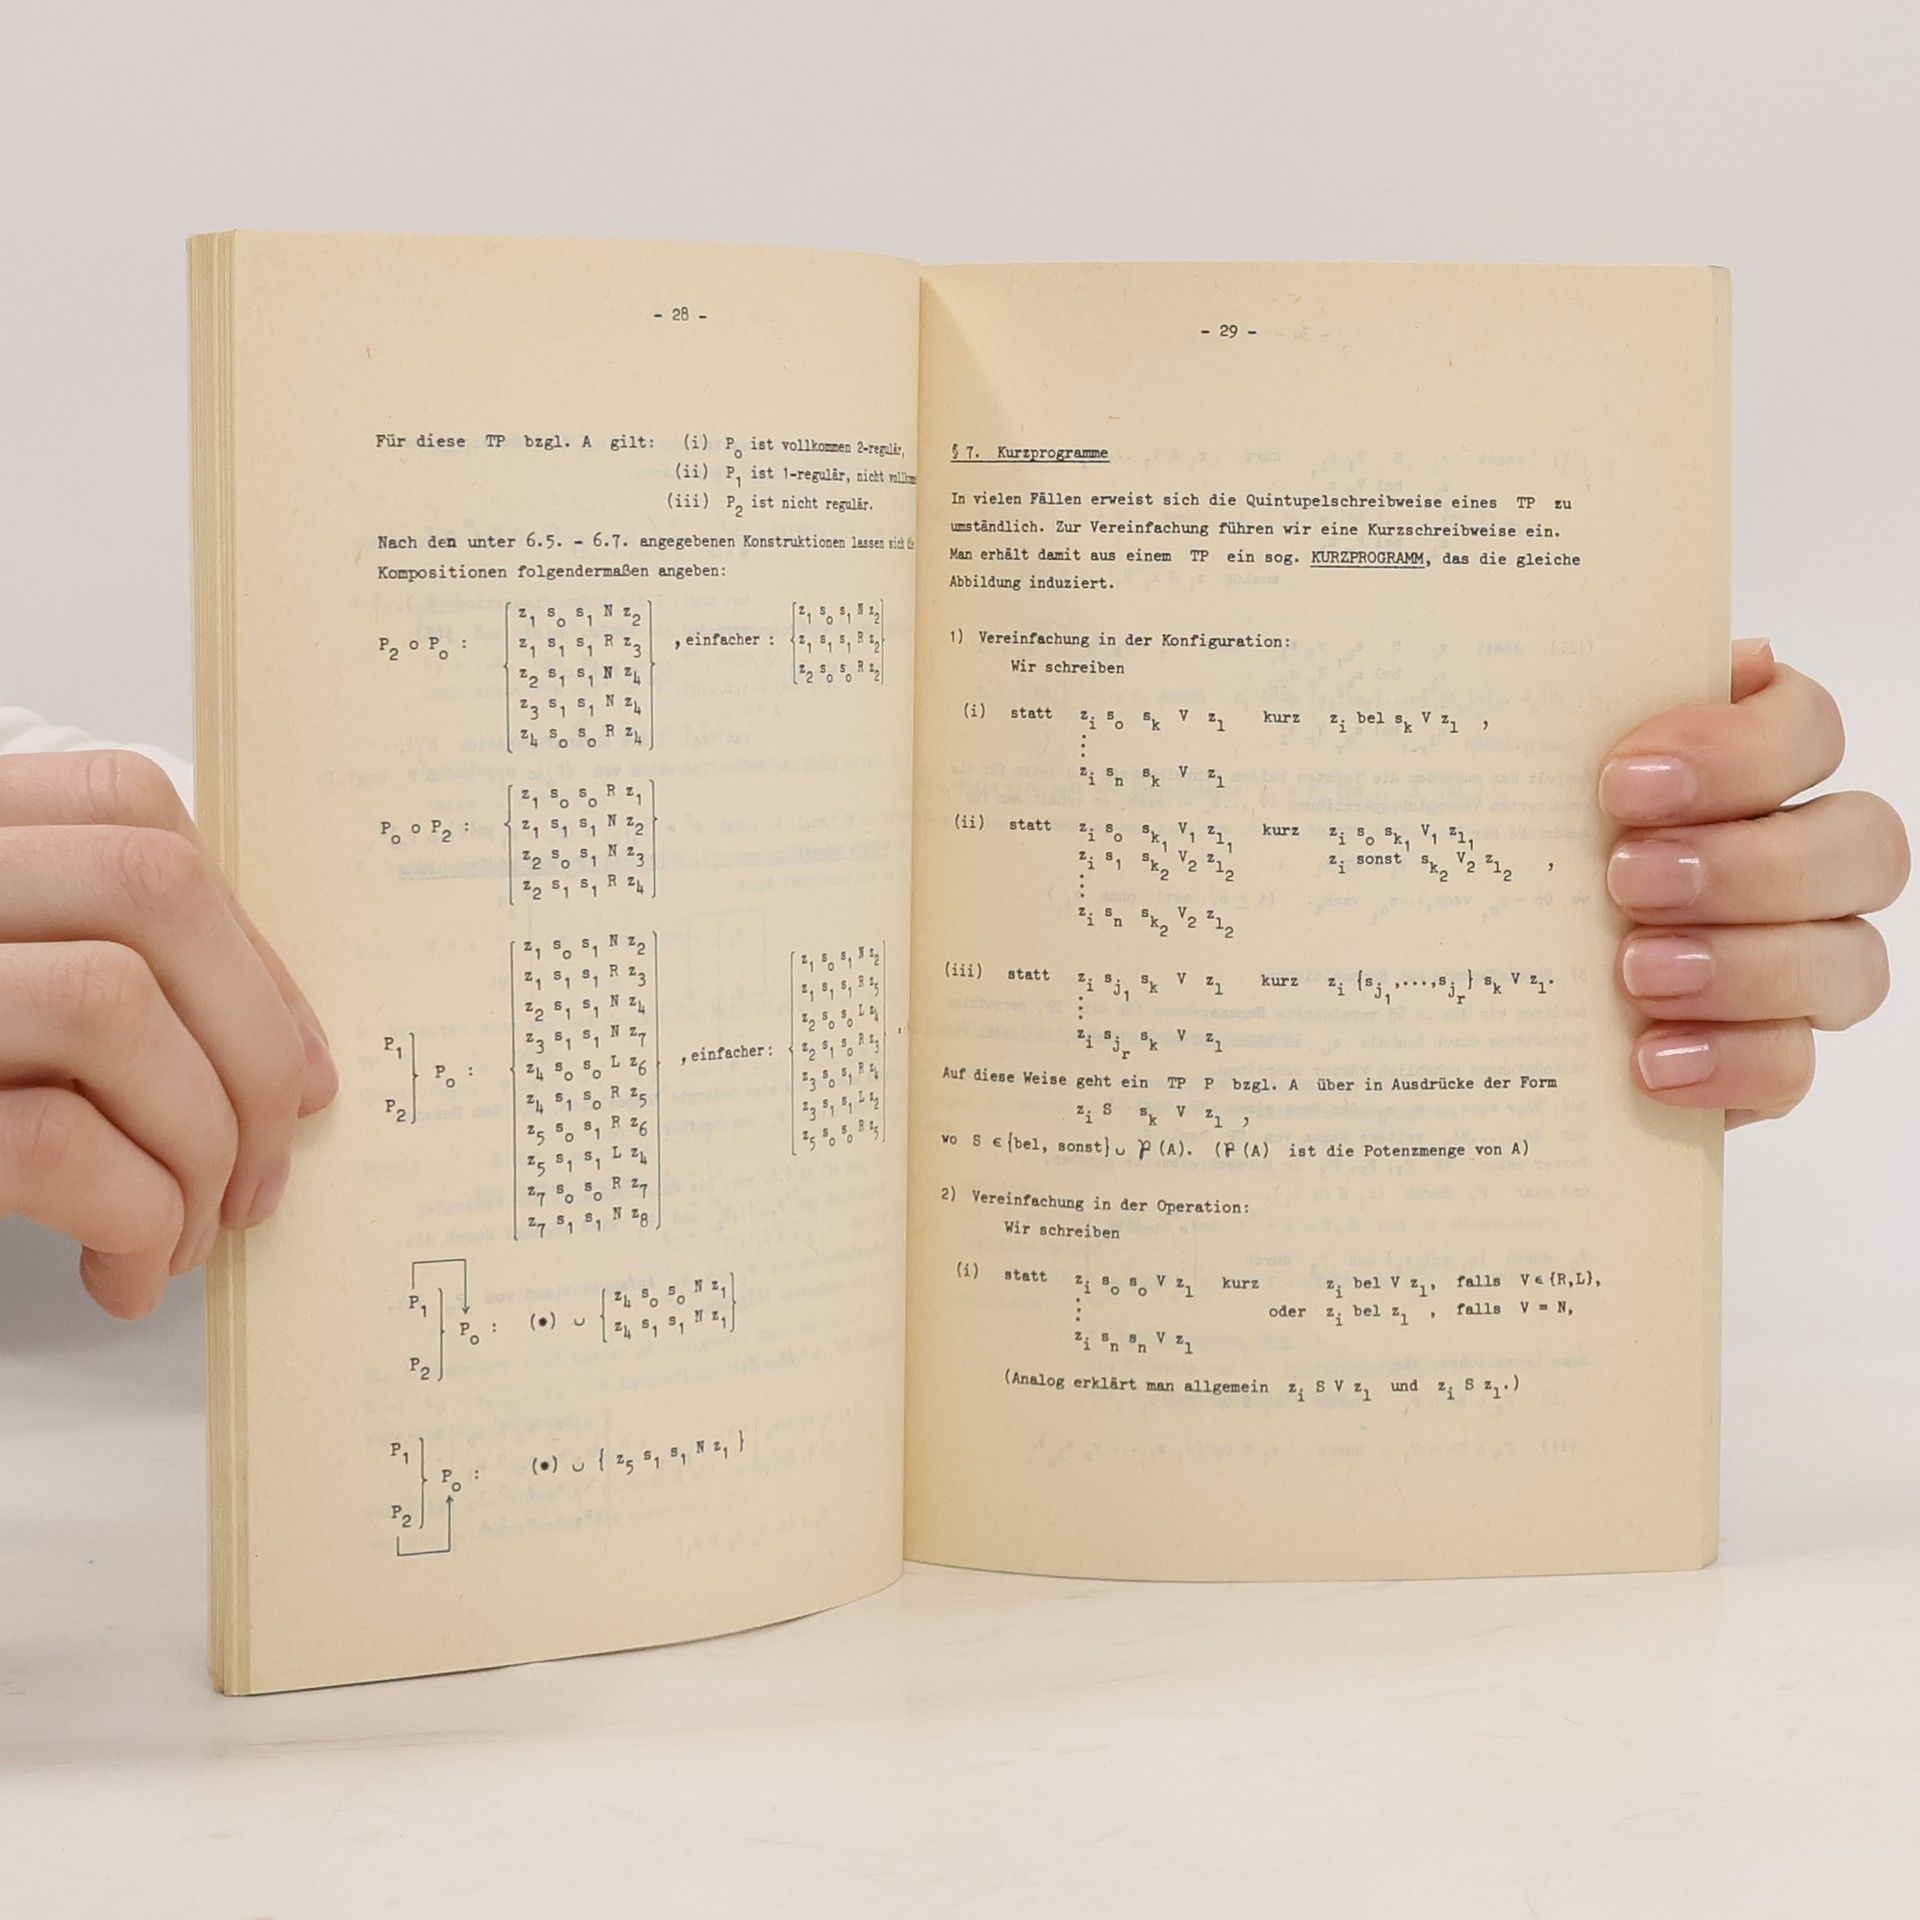 - 28 -
Für diese TP bzgl. A gilt: (i) P₀ ist vollkommen 2-regulär,
(ii) P₁ ist 1-regulär, nicht
(iii) P₂ ist nicht regulär.
Nach den unter 6.5. - 6.7. angegebenen Konstruktionen lassen sich
Kompositionen folgendermaßen angeben:
P₂ o P₀ : { z₁ s₀ s₁ N z₂ , einfacher : { z₁ s₀ s₁ N z₂
z₁ s₁ s₁ R z₃ z₁ s₁ s₁ R z₂
z₂ s₁ s₁ N z₄ z₂ s₀ s₀ R z₂ }
z₃ s₁ s₁ N z₄
z₄ s₀ s₀ R z₄ }
P₀ o P₂ : { z₁ s₀ s₀ R z₁
z₁ s₁ s₁ N z₂
z₂ s₀ s₁ N z₃
z₂ s₁ s₁ R z₄ }
P₁
P₂ } P₀ : { z₁ s₀ s₁ N z₂ , einfacher : { z₁ s₀ s₁ N z₂
z₁ s₁ s₁ R z₃ z₁ s₁ s₁ R z₅
z₂ s₁ s₁ N z₄ z₂ s₀ s₀ L z₄
z₃ s₁ s₁ N z₇ z₂ s₁ s₀ R z₃
z₄ s₀ s₀ L z₆ z₃ s₀ s₁ R z₄
z₄ s₁ s₀ R z₅ z₃ s₁ s₁ L z₂
z₅ s₀ s₁ R z₆ z₅ s₀ s₀ R z₅ }
z₅ s₁ s₁ L z₄
z₇ s₀ s₀ R z₇
z₇ s₁ s₁ N z₈ }
P₁
P₂ } P₀ : (•) ∪ { z₄ s₀ s₀ N z₁
z₄ s₁ s₁ N z₁ }
P₁
P₂ } P₀ : (•) ∪ { z₅ s₁ s₁ N z₁ }
- 29 -
§ 7. Kurzprogramme
In vielen Fällen erweist sich die Quintupelschreibweise eines TP zu
umständlich. Zur Vereinfachung führen wir eine Kurzschreibweise ein.
Man erhält damit aus einem TP ein sog. KURZPROGRAMM, das die gleiche
Abbildung induziert.
1) Vereinfachung in der Konfiguration:
Wir schreiben
(i) statt zᵢ s₀ sₖ V zₗ kurz zᵢ bel sₖ V zₗ ,
⋮
zᵢ sₙ sₖ V zₗ
(ii) statt zᵢ s₀ sₖ₁ V₁ zₗ₁ kurz zᵢ s₀ sₖ₁ V₁ zₗ₁
zᵢ s₁ sₖ₂ V₂ zₗ₂ zᵢ sonst sₖ₂ V₂ zₗ₂ ,
⋮
zᵢ sₙ sₖ₂ V₂ zₗ₂
(iii) statt zᵢ sⱼ₁ sₖ V zₗ kurz zᵢ {sⱼ₁,...,sⱼᵣ} sₖ V zₗ.
⋮
zᵢ sⱼᵣ sₖ V zₗ
Auf diese Weise geht ein TP P bzgl. A über in Ausdrücke der Form
zᵢ S sₖ V zₗ ,
wo S ∈ {bel, sonst} ∪ ℘(A). (℘(A) ist die Potenzmenge von A)
2) Vereinfachung in der Operation:
Wir schreiben
(i) statt zᵢ s₀ s₀ V zₗ kurz zᵢ bel V zₗ, falls V ∈ {R,L},
⋮ oder zᵢ bel zₗ , falls V = N,
zᵢ sₙ sₙ V zₗ
(Analog erklärt man allgemein zᵢ S V zₗ und zᵢ S zₗ.)